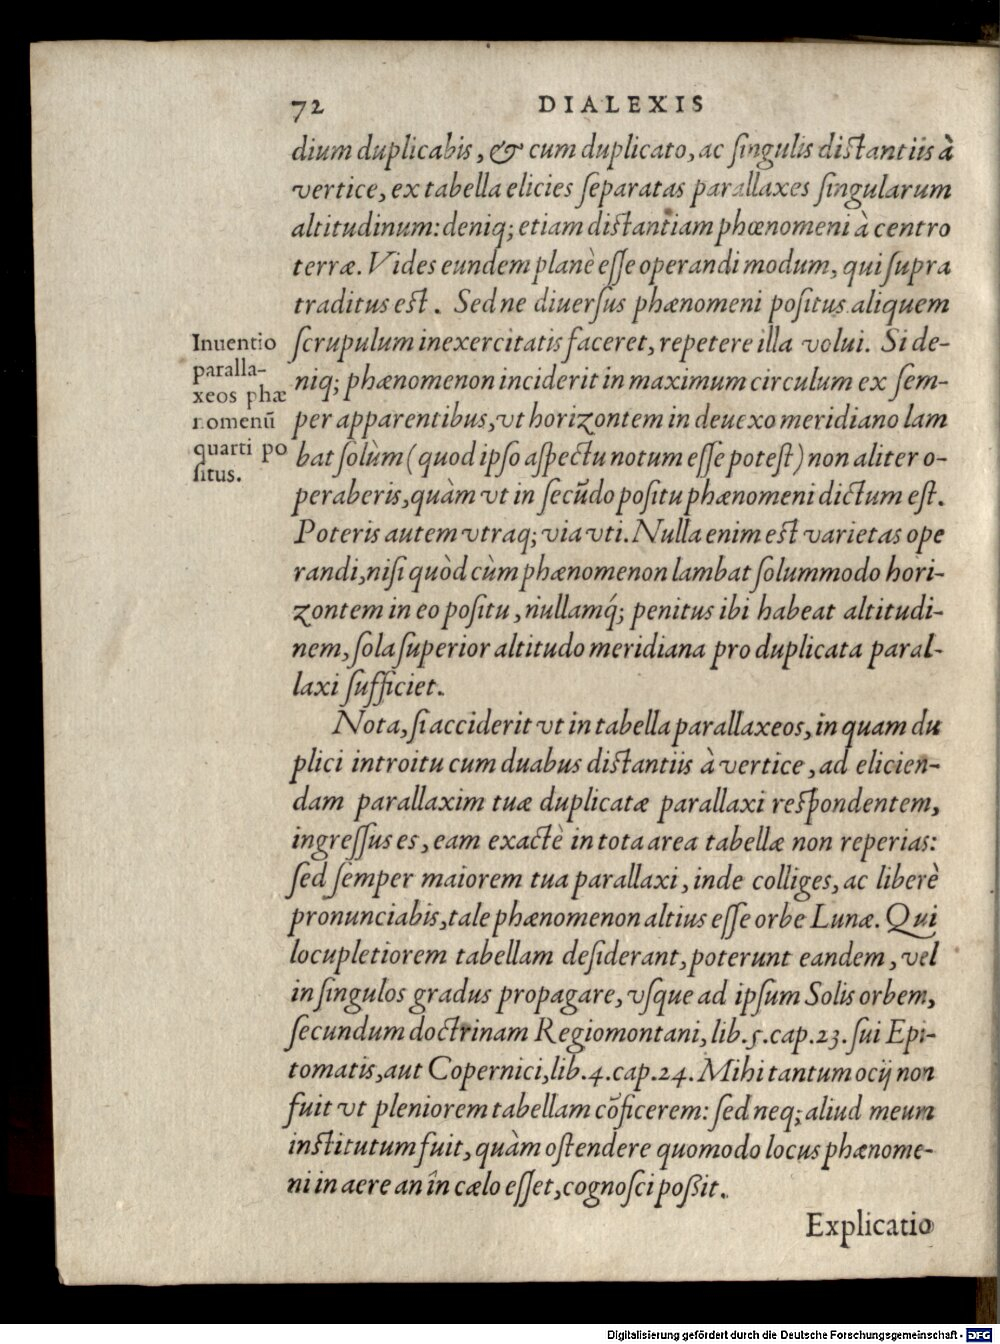 72 DIALEXIS
dium duplicabis, & cum duplicato, ac ſingulis distantiis à
vertice, ex tabella elicies ſeparatas parallaxes ſingularum
altitudinum: deniq; etiam distantiam phœnomeni à centro
terræ. Vides eundem planè eſſe operandi modum, qui ſupra
traditus est. Sed ne diuerſus phænomeni poſitus aliquem
ſcrupulum inexercitatis faceret, repetere illa volui. Si de-
niq; phænomenon inciderit in maximum circulum ex ſem-
per apparentibus, vt horizontem in deuexo meridiano lam
bat ſolùm (quod ipſo aſpectu notum eſſe poteſt) non aliter o-
peraberis, quàm vt in ſecũdo poſitu phænomeni dictum eſt.
Poteris autem vtraq; via vti. Nulla enim est varietas ope
randi, niſi quòd cùm phænomenon lambat ſolummodo hori-
zontem in eo poſitu, nullamq́; penitus ibi habeat altitudi-
nem, ſola ſuperior altitudo meridiana pro duplicata paral-
laxi ſufficiet.
Inuentio
paralla-
xeos phæ
nomenũ
quarti po
ſitus.
Nota, ſi acciderit vt in tabella parallaxeos, in quam du
plici introitu cum duabus distantiis à vertice, ad elicien-
dam parallaxim tuæ duplicatæ parallaxi reſpondentem,
ingreſſus es, eam exactè in tota area tabellæ non reperias:
ſed ſemper maiorem tua parallaxi, inde colliges, ac liberè
pronunciabis, tale phænomenon altius eſſe orbe Lunæ. Qui
locupletiorem tabellam deſiderant, poterunt eandem, vel
in ſingulos gradus propagare, vſque ad ipſum Solis orbem,
ſecundum doctrinam Regiomontani, lib. 5. cap. 23. ſui Epi-
tomatis, aut Copernici, lib. 4. cap. 24. Mihi tantum ocij non
fuit vt pleniorem tabellam cõficerem: ſed neq; aliud meum
institutum fuit, quàm oſtendere quomodo locus phænome-
ni in aere an în cælo eſſet, cognoſci poßit.
Explicatio
Digitalisierung gefördert durch die Deutsche Forschungsgemeinschaft - DFG